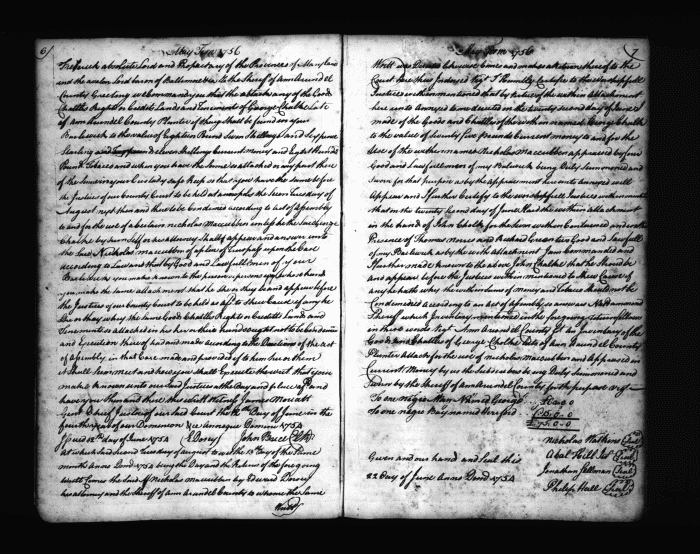 6
May Term 1756
Frederick absolute Lord and Proprietary of the Province of Maryland
and Avalon Lord Baron of Baltemore &c To the Sheriff of Ann Arundel
County Greeting we Command you that the attach any of the Goods
Chattles Rights or Credits Lands and Tenements of George Chalke late
of Ann Arundel County Planter if they shall be found in your
Bailiwick to the value of Eight Pound Seven Shillings and Six pence
Sterling and Seven Shillings Current money and Eight Hundred
Pound Tobacco and when you have the same so attached or any part there
of the same in your Custody safe keep so that you have the same before
the Justices of our County Court to be held at annapolis the second Tuesday of
August next then and there to be Condemned according to act of Assembly
to and for the use of a certain Nicholas Maccubbin unless the said George
Chalke by himself or his attorney shall appear and answer unto
the said Nicholas Maccubbin of a plea of Trespass upon the Case
according to Law and that by Good and Lawfull Men of your
Bailiwick you make known to the person or persons in whose hands
you make the same attachment that he she or they be and appear before
the Justices of our County Court to be held as afd. to shew Cause if any he
she or they why the same Goods Chattles Rights or Credits Lands and
Tenements so attached in his her or their hands ought not to be Condemned
and Execution thereof had and made according to the Directions of the act
of Assembly in that Case made and provided if to him her or them
it shall seem meet and how you shall Execute this writ that you
make known unto our said Justices at the day and place afd. and
have you then and there this writ Witness James Mouatt
Gent Chief Justice of our said Court the 12th Day of June in the
fourth year of our Dominion &c Annoque Domini 1754
Issued 12th day of June 1754 E Dorsey John Brice Clk
At which said second Tuesday of august to wit the 13th day of the same
month anno Domi 1754 being the Day and the Return of the foregoing
Writt Comes the said Nicholas Maccubbin by Edward Dorsey
his attorney and the Sheriff of Ann Arundel County to whom the same
Writt
May Term 1756
7
Writt was Directed likewise Comes and makes return thereof to the
Court here thus Indorsed Vizt I hereby Certifie to the
Justices within mentioned that by virtue of the within attachment
here unto annexed to me directed on the twenty second day of June I
made of the Goods and Chattles of the within named George Chalke
to the value of seventy five Pounds Current money to and for the
Use of the within named Nicholas Maccubbin appraised by four
Good and Lawfull men of my Bailiwick being Duly Summoned and
Sworn for that purpose as by the appraisment here unto annexed will
Appear and I further Certify to the Justices within mentioned
that on the twenty second day of June I laid the within attachment
in the hand of John Chalk for the sum within Contained and in the
Presence of Thomas Norris and Richard two Good and Lawfull
of my Bailiwick as by the writ attachment I am Commanded and
I further made known to the above John Chalke that he should be
and appear before the Justices within mentioned to shew Cause if
any he hath why the within sums of money and Tobacco should not be
Condemned according to an act of Assembly
Sheriff which Inventory mentioned in the foregoing return follows
in these words Vizt Ann Arundel County Sc. an Inventary of the
Goods and Chattles of George Chalke Late of Ann Arundel County
Planter Attach for the use of Nicholas Maccubbin and appraised in
Current Money by us the subscribers being Duly Summoned and
Sworn by the Sheriff of Ann Arundel County for the purpose Vizt
To one Negro Man Named George
To one negro Boy named
£75.0.0
Given under our hand and Seal this
22 Day of June Anno Domi 1754
Nicholas Watkins (Seal)
Abel Hill (Seal)
Jonathan Sellman (Seal)
Philip Hall (Seal)